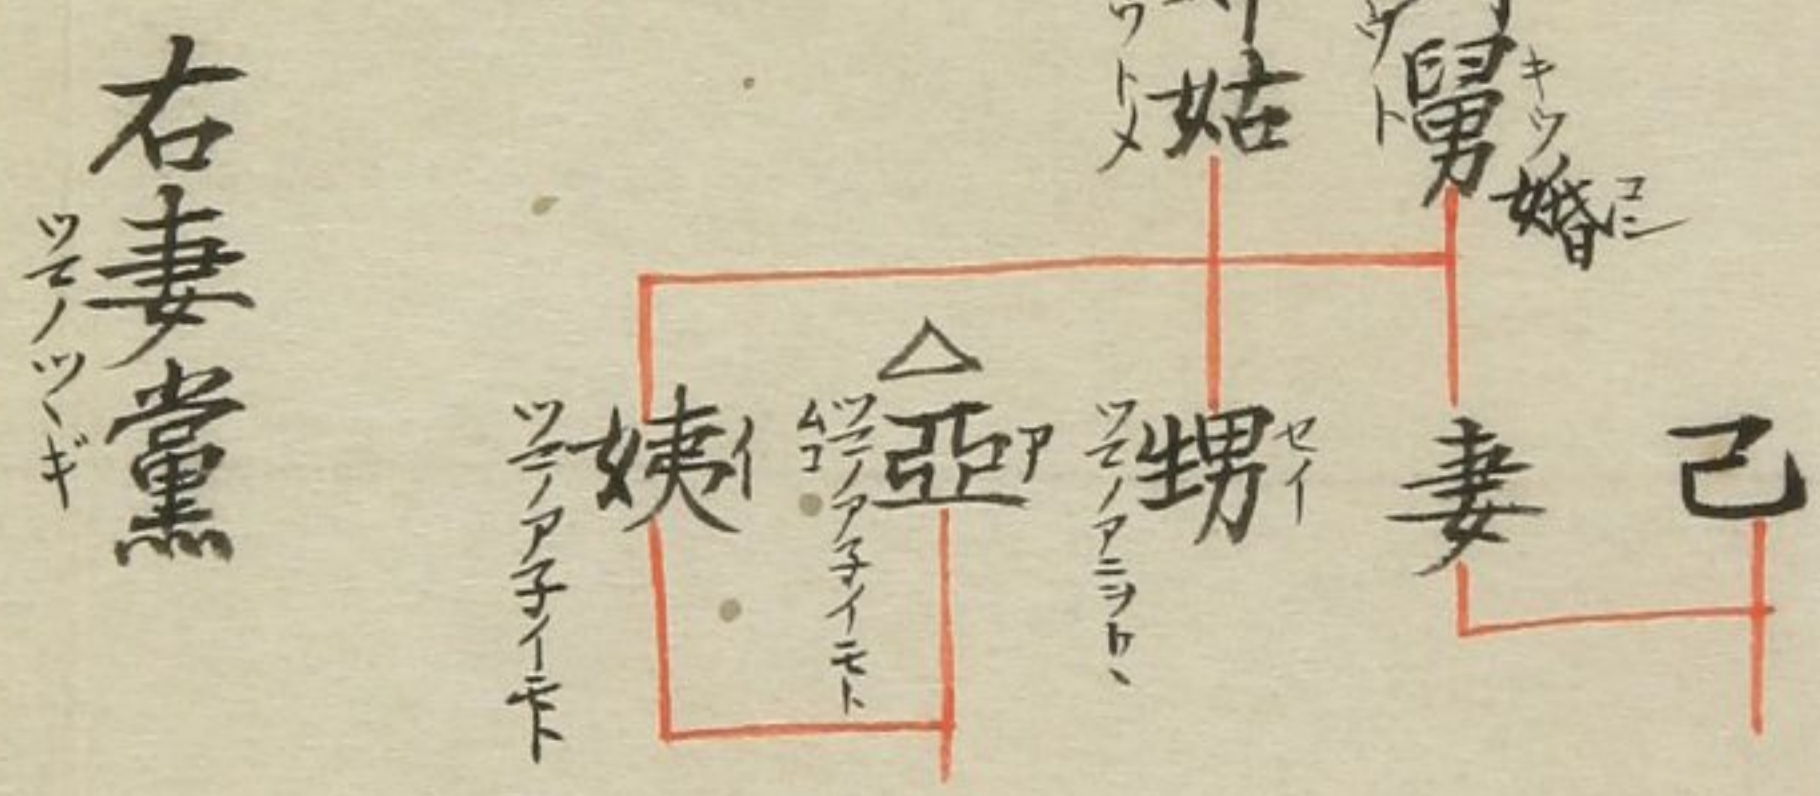 己
妻
舅
キウ
婚
コン
姑
ウトメ
甥
セイ
ツマノアニヲトヽ
△
亞
ア
ツマノアネイモト
ムコ
姨
イ
ツマノアネイモト
右妻黨
ツマノツヽギ